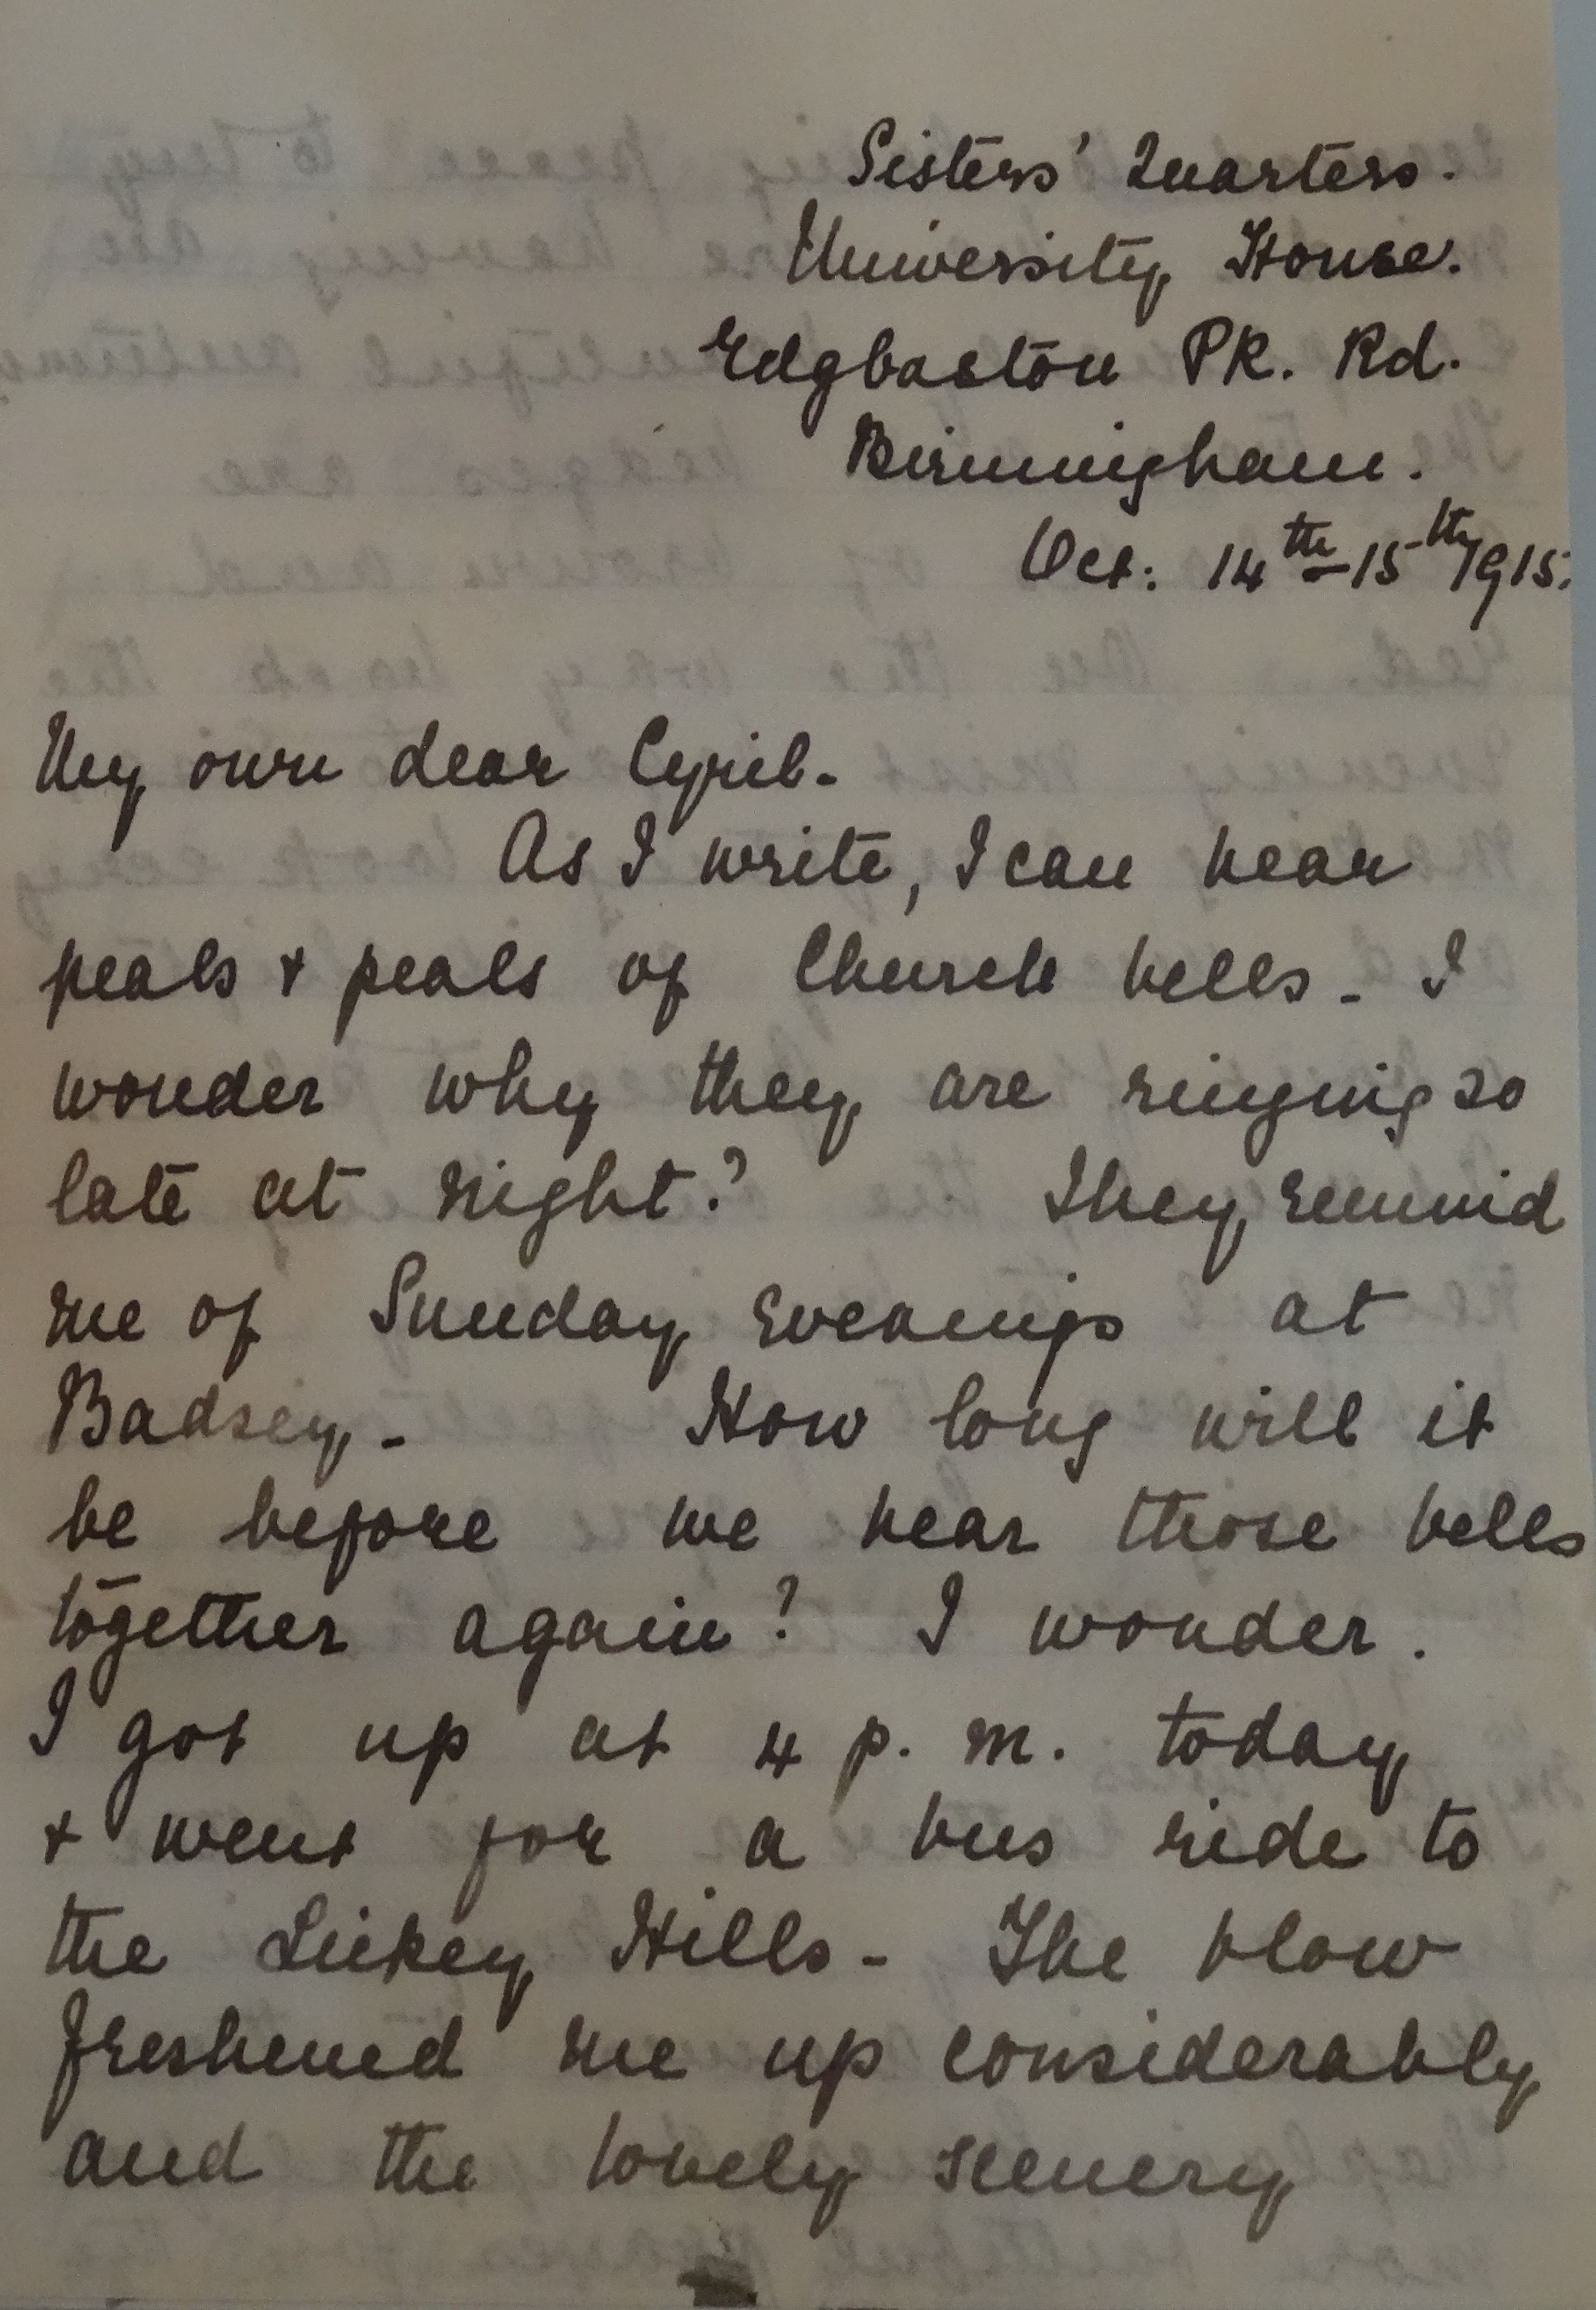 Sisters' Quarters.
University House.
Edgbaston PK. Rd.
Birmingham.
Oct: 14th-15th/1915.
My own dear Cyril-
As I write, I can hear
peals + peals of Church bells - I
wonder why they are ringing so
late at night? They remind
me of Sunday evenings at
Badsey - How long will it
be before we hear those bells
together again? I wonder.
I got up at 4 p. m. today
+ went for a bus ride to
the Lickey Hills - The blow
freshened me up considerably
and the lovely scenery